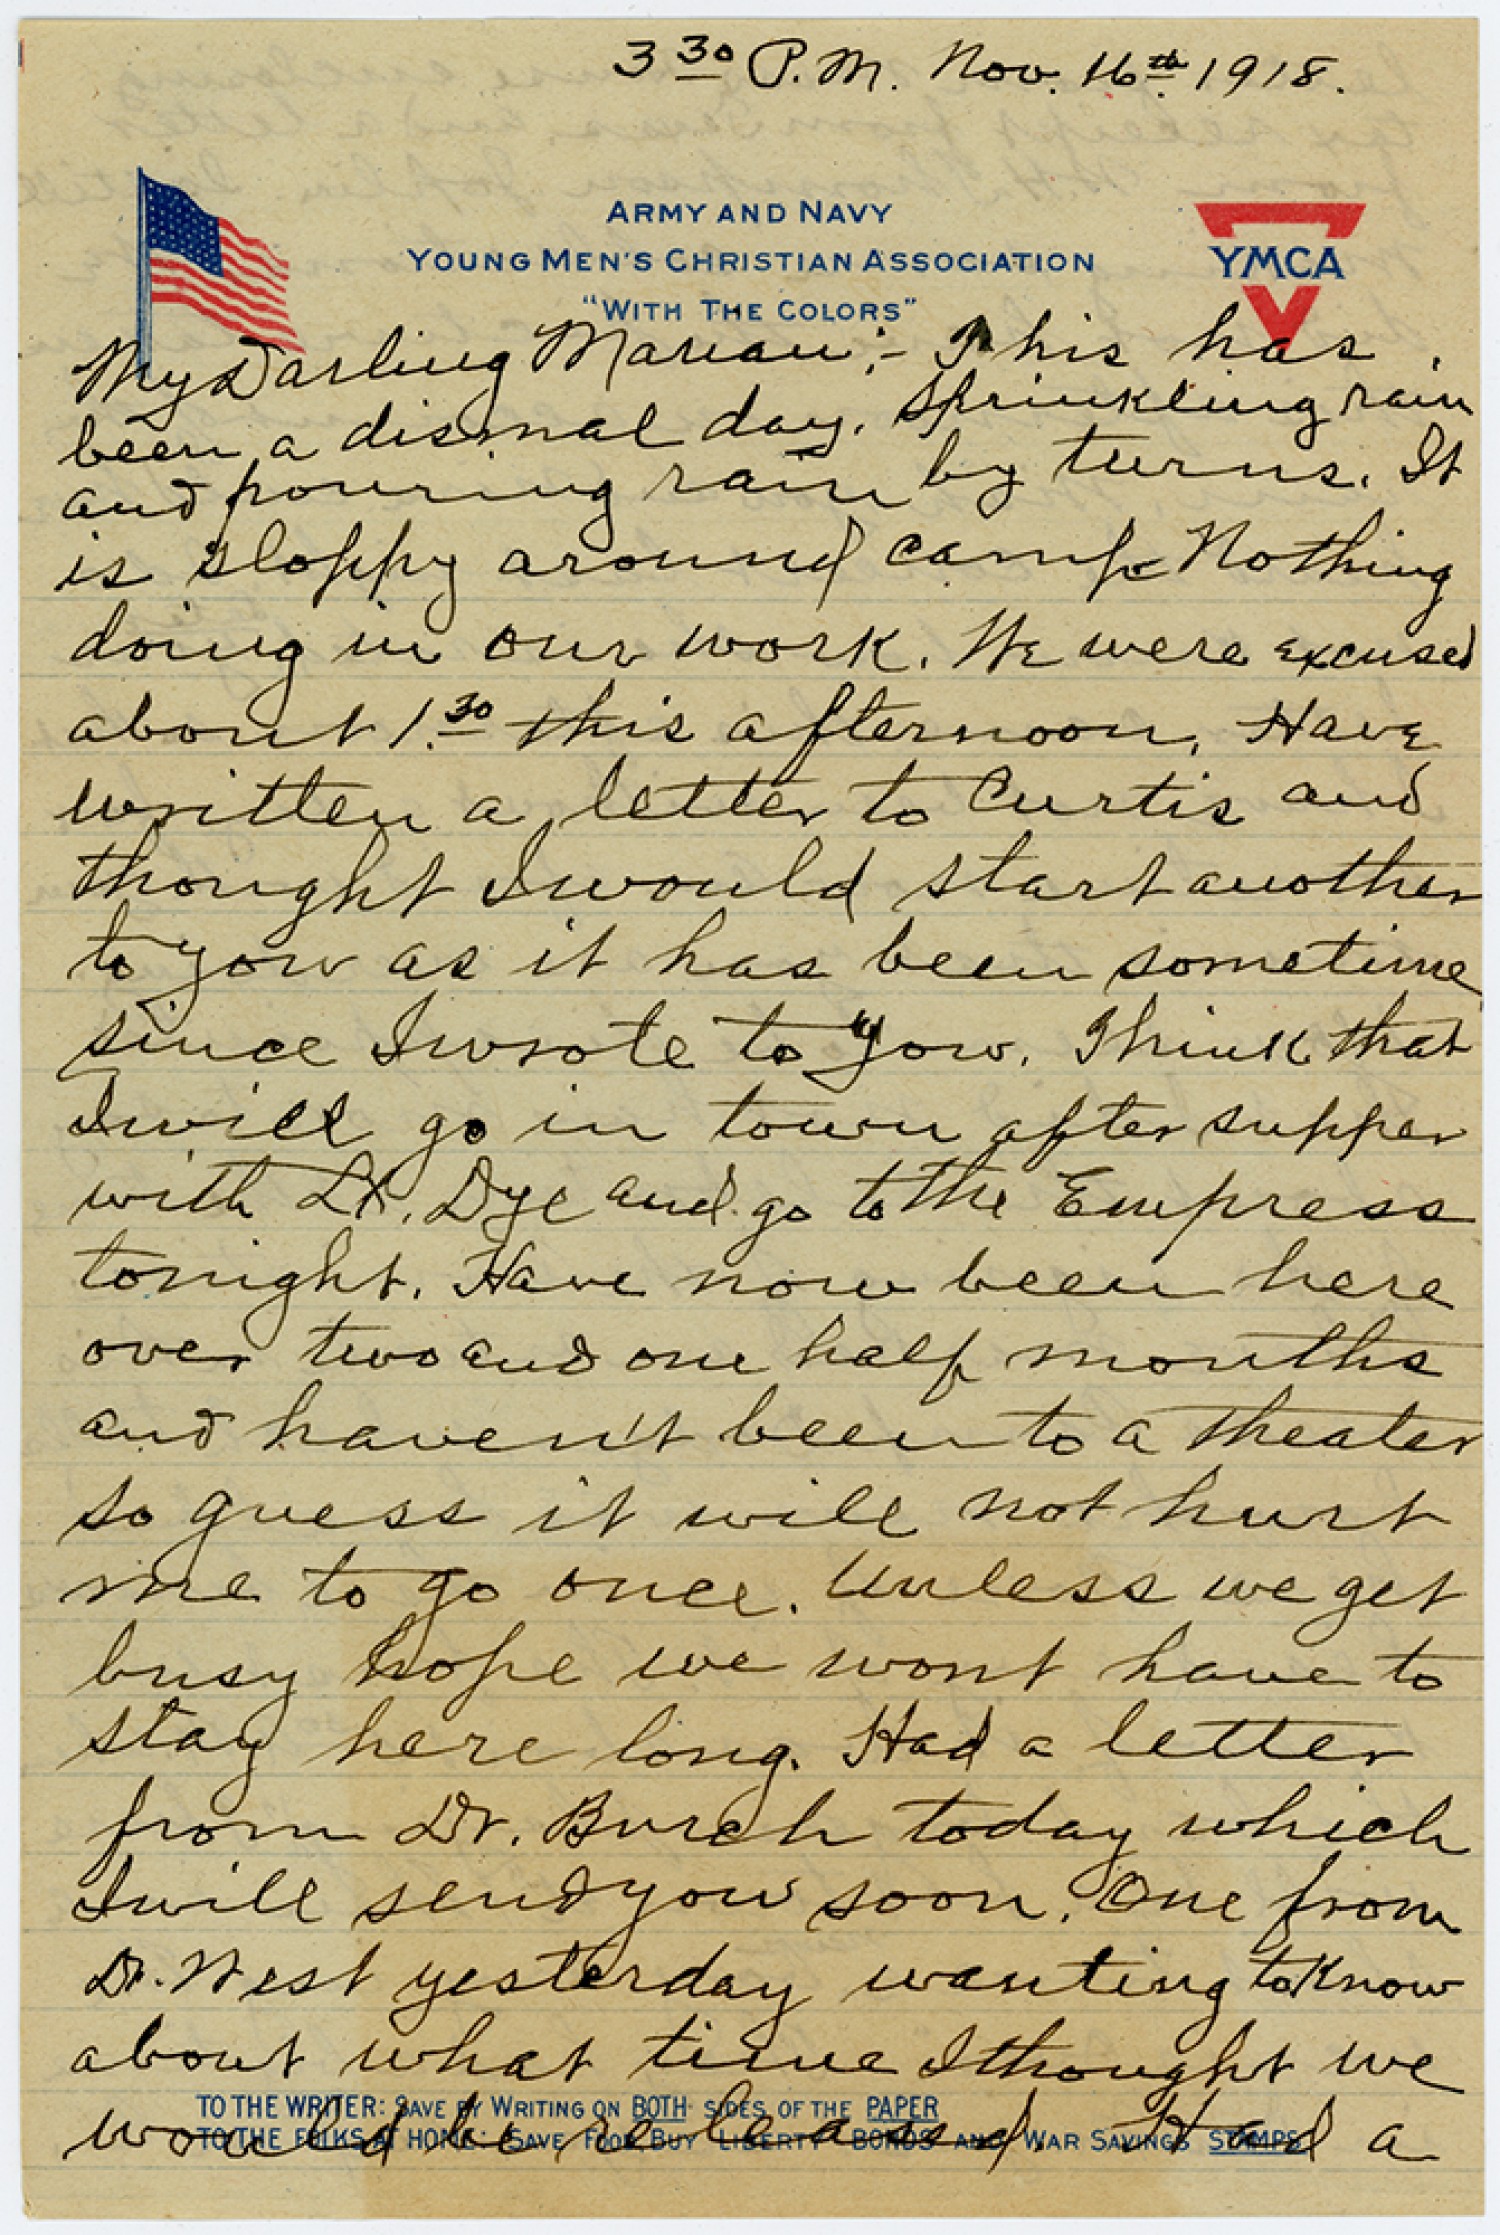 3 30 P.M. Nov. 16th 1918.
ARMY AND NAVY
YOUNG MEN'S CHRISTIAN ASSOCIATION
"WITH THE COLORS"
YMCA
My Darling Marian;- This has
been a dismal day. Sprinkling rain
and pouring rain by turns. It
is sloppy around camp. Nothing
doing in our work. We were excused
about 1.30 this afternoon. Have
written a letter to Curtis and
thought I would start another
to you as it has been sometime
since I wrote to you. Think that
I will go in town after supper
with Lt. Dye and go to the Empress
tonight. Have now been here
over two and one half months
and haven't been to a theater
so guess it will not hurt
me to go once. Unless we get
busy hope we wont have to
stay here long. Had a letter
from Dr. Burch today which
I will send you soon. One from
Dr. West yesterday wanting to know
about what time I thought we
would be released. Had a
TO THE WRITER: SAVE BY WRITING ON BOTH SIDES OF THE PAPER
TO THE FOLKS AT HOME: SAVE FOOD BUY LIBERTY BONDS AND WAR SAVINGS STAMPS